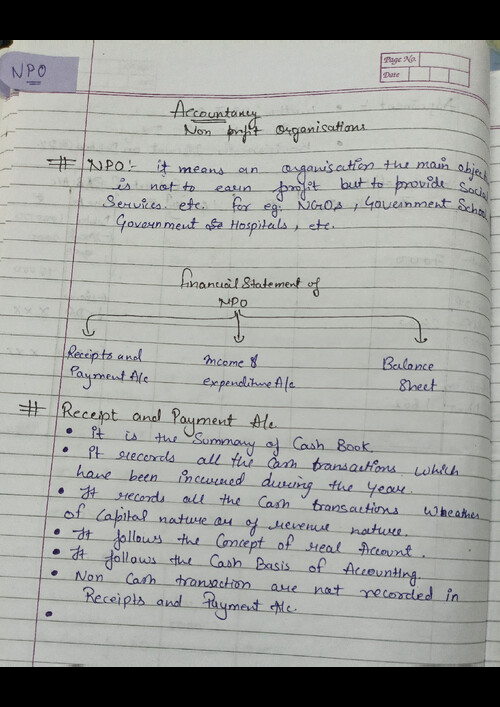 NPO
Page No.
Date
Accountancy
Non profit organisations
# NPO:- it means an organisation the main object
is not to earn profit but to provide Social
Services etc. for eg: NGOs, Government School
Government Hospitals, etc.
financial Statement of
NPO
Receipts and Income & Balance
Payment A/c expenditure A/c Sheet
# Receipt and Payment A/c.
• It is the Summary of Cash Book.
• It records all the Cash transactions which
have been incurred during the year.
• It records all the Cash transactions wheather
of Capital nature or of revenue nature.
• It follows the Concept of real Account.
• It follows the Cash Basis of Accounting.
• Non Cash transaction are not recorded in
Receipts and Payment A/c.
•